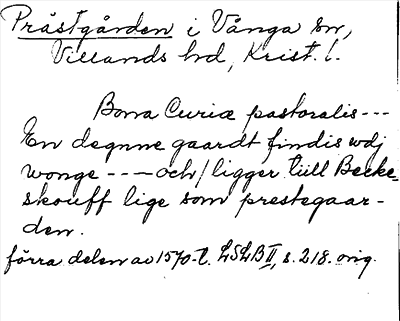 Prästgården i Vånga sn,
Villands hd, Krist. l.
Bona Curiæ pastoralis ---
En degnne gaardt findis wdj
wonge ---- och / ligger tiill Becke-
skouff lige som prestegaar-
den.
förra delen av 1570-t. LSLB II, s. 218. orig.